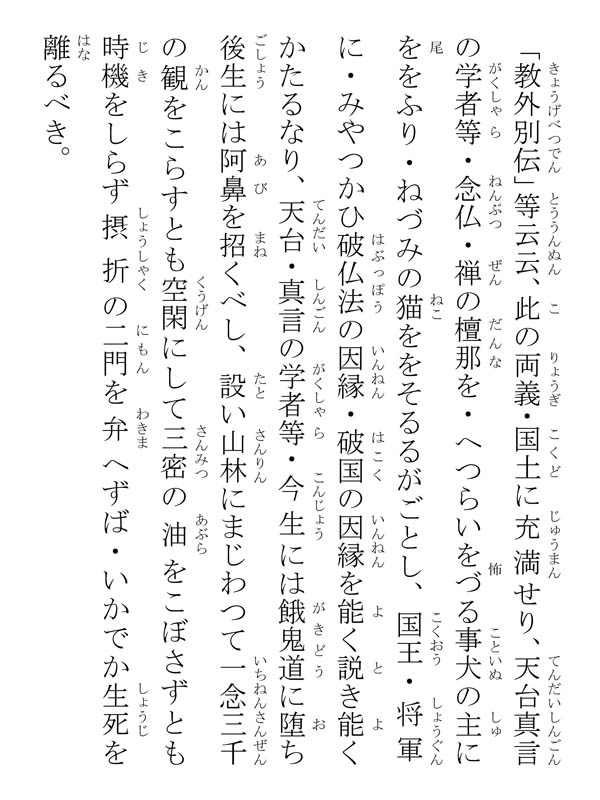 「教外別伝」等云云、此の両義・国土に充満せり、天台真言
の学者等・念仏・禅の檀那を・へつらいをづる事犬の主に
ををふり・ねづみの猫ををそるるがごとし、国王・将軍
に・みやつかひ破仏法の因縁・破国の因縁を能く説き能く
かたるなり、天台・真言の学者等・今生には餓鬼道に堕ち
後生には阿鼻を招くべし、設い山林にまじわつて一念三千
の観をこらすとも空閑にして三密の油をこぼさずとも
時機をしらず摂折の二門を弁へずば・いかでか生死を
離るべき。